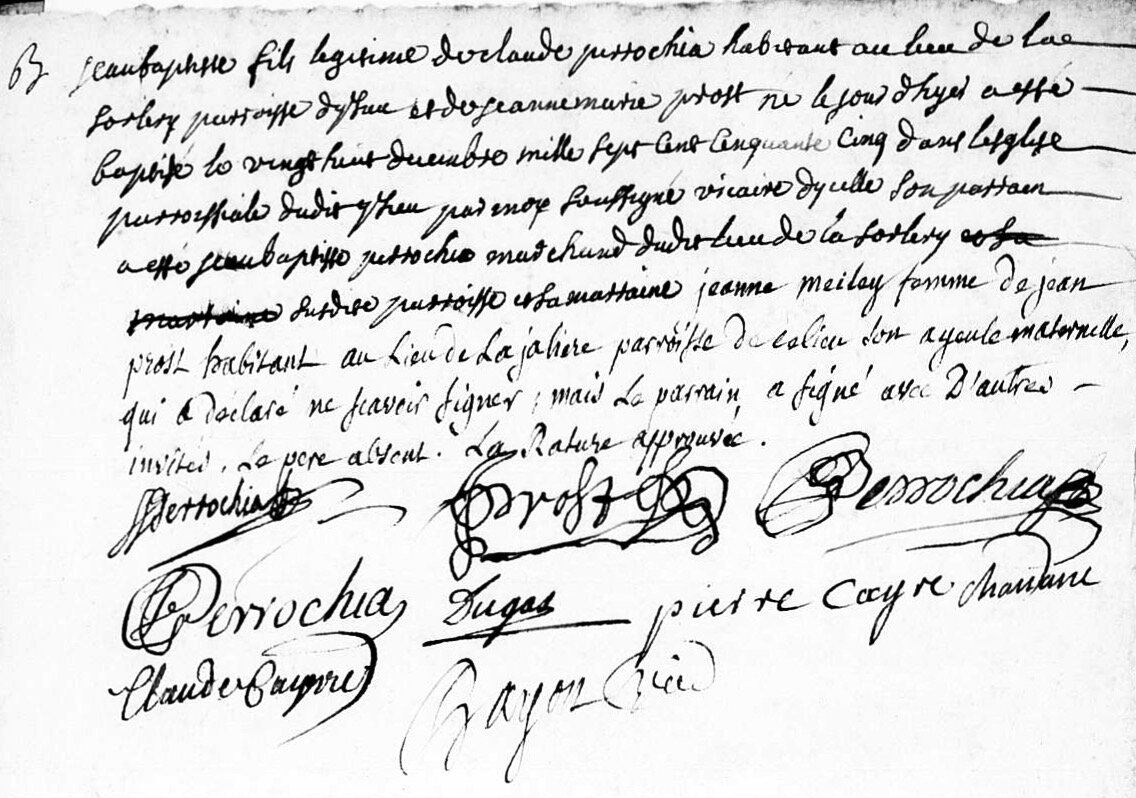 63 jeanbaptiste fils legitime de claude perrochia habitant au lieu de la
sorlery parroisse dysieu et de jeanne marie prost ne le jour d'hyer a esté
baptisé le vingt huit decembre mille sept cent cinquante cinq dans leglise
parroissiale dudit ysieu par moy soussigné vicaire dycelle son parrain
a esté jean baptiste perrochia marchand dudit lieu de la sorlery et sa
marraine susdite parroisse et sa marraine jeanne meiley femme de jean
prost habitant au lieu de la jaliere parroisse de celieu son ayeule maternelle,
qui a déclaré ne scavoir signer, mais le parrain a signé avec D'autres
invités. Le pere absent. La Rature approuvée.
Perrochia Prost Perrochia
Perrochia Dugas pierre Cayre chandane
Claude Cayre
Bayon vic